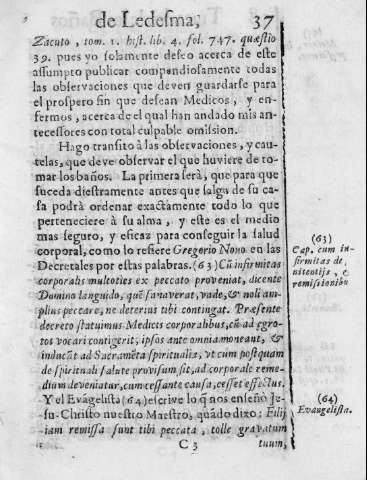 de Ledesma, 37
Zacuto, tom. 1. hist. lib. 4. fol. 747. quæstio
39. pues yo solamente deseo acerca de este
assumpto publicar compendiosamente todas
las observaciones que deven guardarse para
el prospero fin que desean Medicos, y en-
fermos, acerca de el qual han andado mis an-
tecessores con total culpable omission.
Hago transito à las observaciones, y cau-
telas, que deve observar el que huviere de to-
mar los baños. La primera serà, que para que
suceda diestramente antes que salga de su ca-
sa podrà ordenar exactamente todo lo que
perteneciere à su alma, y este es el medio
mas seguro, y eficaz para conseguir la salud
corporal, como lo refiere Gregorio Nono en las
Decretales por estas palabras. (63) Cũ infirmitas
corporalis multoties ex peccato proveniat, dicente
Domino languido, quẽ sanaverat, vade, & noli am-
plius peccare, ne deterius tibi contingat. Præsente
decreto statuimus Medicis corporalibus, cũ ad ægro-
tos vocari contigerit, ipsos ante omnia moneant, &
inducãt ad Sacramẽta spiritualia, vt cum postquam
de spirituali salute provisum sit, ad corporale reme-
dium deveniatur, cum cessante causa, cesset effectus.
Y el Evãgelista (64) escrive lo q̃ nos enseñò Je-
su-Christo nuestro Maestro, quãdo dixo: Filij
iam remissa sunt tibi peccata, tolle gravatum
C 3 tuum,
(63)
Cap. cum in-
firmitas de
nitentijs, &
remissionibu
(64)
Evangelista.